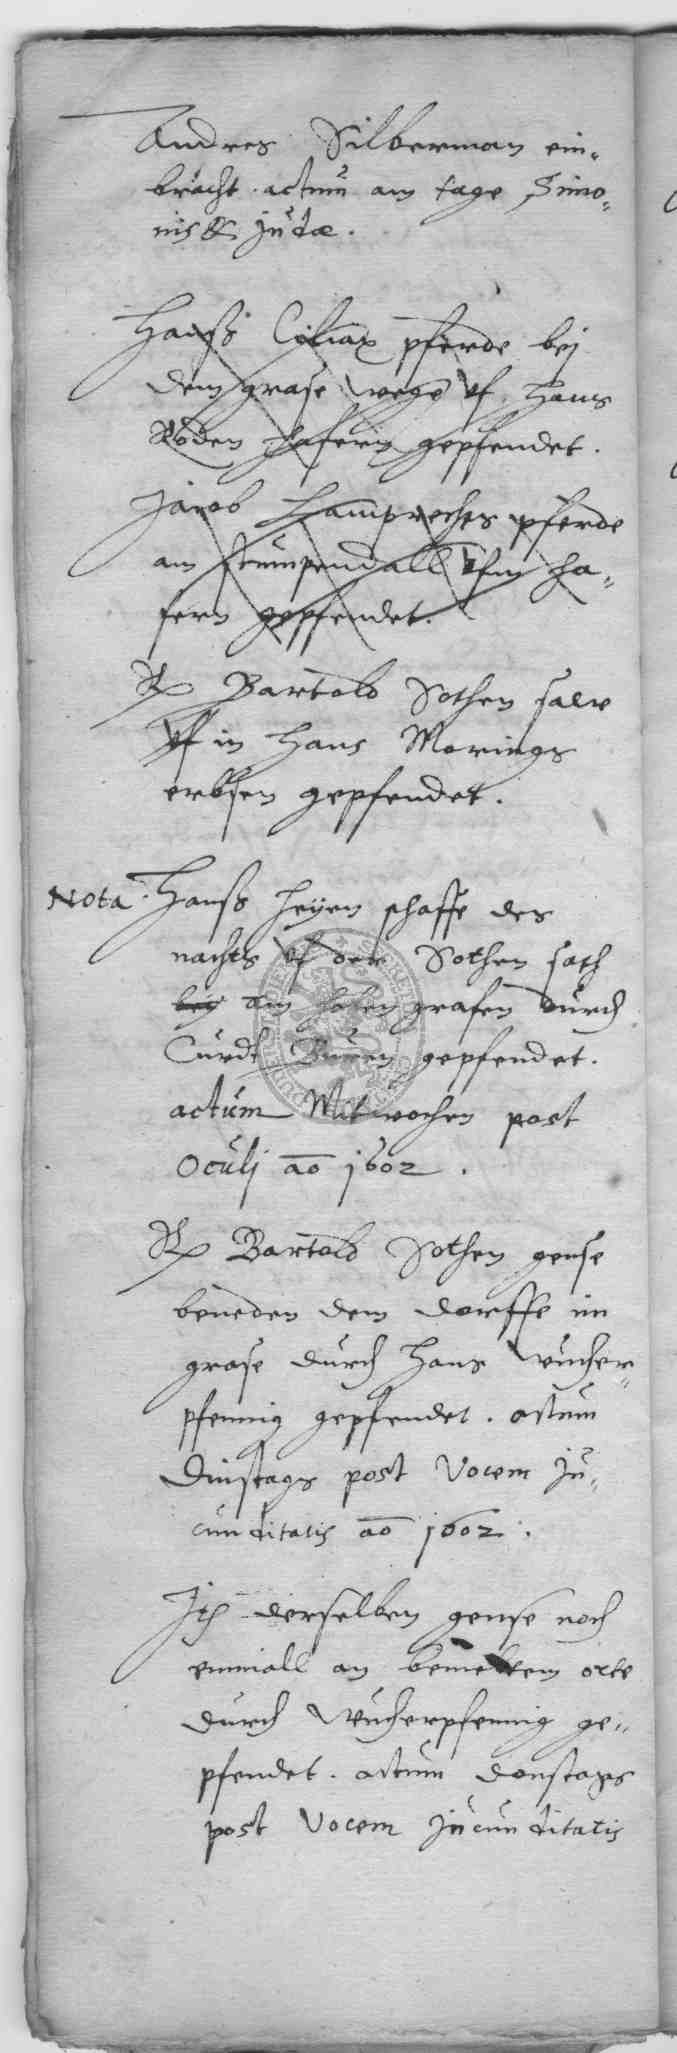 Andres Silberman ein-
bracht. actum am tage Simo-
nis & Judæ.
Hanß Ciliax pferde bej
dem grase wege uf Hans
Roden hafern gepfendet.
Jacob Hamprechts pferde
am stumpendall ufm ha-
fern gepfendet.
Bartold Sothen saew
uf in Hans Morings
erbsen gepfendet.
Nota. Hanß Heyen schaffe des
nachts uf der Sothen sath
bey am hohen grafen durch
Curdt Buren gepfendet.
actum Mitwochen post
Oculj ao 1602.
Bartold Sothen gense
beneden dem dorffe im
grase durch Hans Wucher-
pfennig gepfendet. actum
Dinstags post Vocem Ju-
cunditatis ao 1602.
It derselben gense noch
einmall an bemeltem orte
durch Wucherpfennig ge-
pfendet. actum donstags
post Vocem Jucunditatis